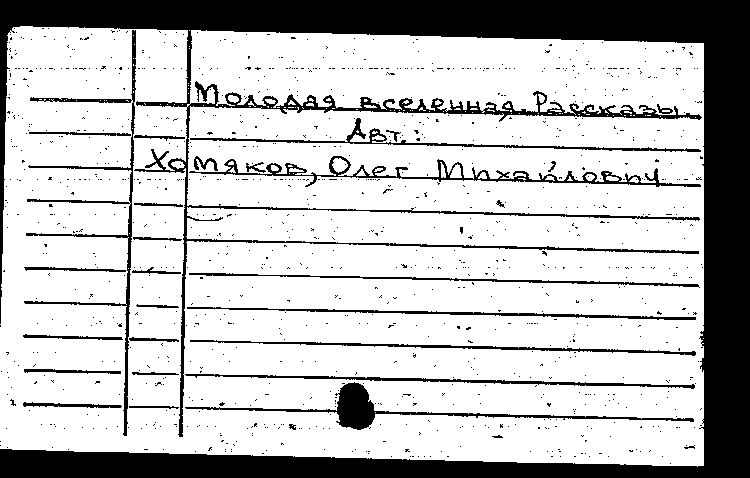 Молодая вселенная. Рассказы.
Авт.:
Хомяков, Олег Михайлович